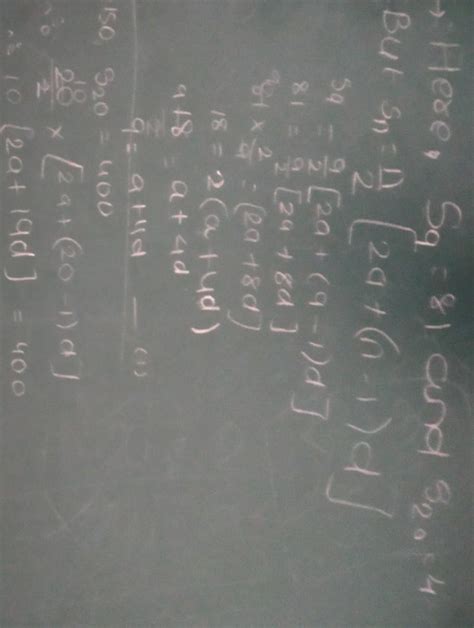 → Here, S9 = 81 and S20 = 4
But Sn = n/2 [2a + (n - 1)d]
S9 = 9/2 [2a + (9 - 1)d]
81 = 9/2 [2a + 8d]
81 × 2/9 = [2a + 8d]
18 = 2(a + 4d)
18/2 = a + 4d
9 = a + 4d — (1)
S20 = 400
20/2 × [2a + (20 - 1)d]
10 [2a + 19d] = 400